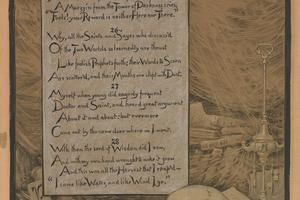 A Muezzin from the Tower of Darkness cries,
"Fools! your Reward is neither Here nor There."
26
Why, all the Saints and Sages who discuss'd
Of the Two Worlds so learnedly are thrust
Like foolish Prophets forth; their Words to Scorn
Are scatter'd, and their Mouths are stopt with Dust.
27
Myself when young did eagerly frequent
Doctor and Saint, and heard great argument
About it and about: but evermore
Came out by the same door where in I went.
28
With them the seed of Wisdom did I sow,
And with my own hand wrought to make it grow;
And this was all the Harvest that I reap'd—
"I came like Water, and like Wind I go."